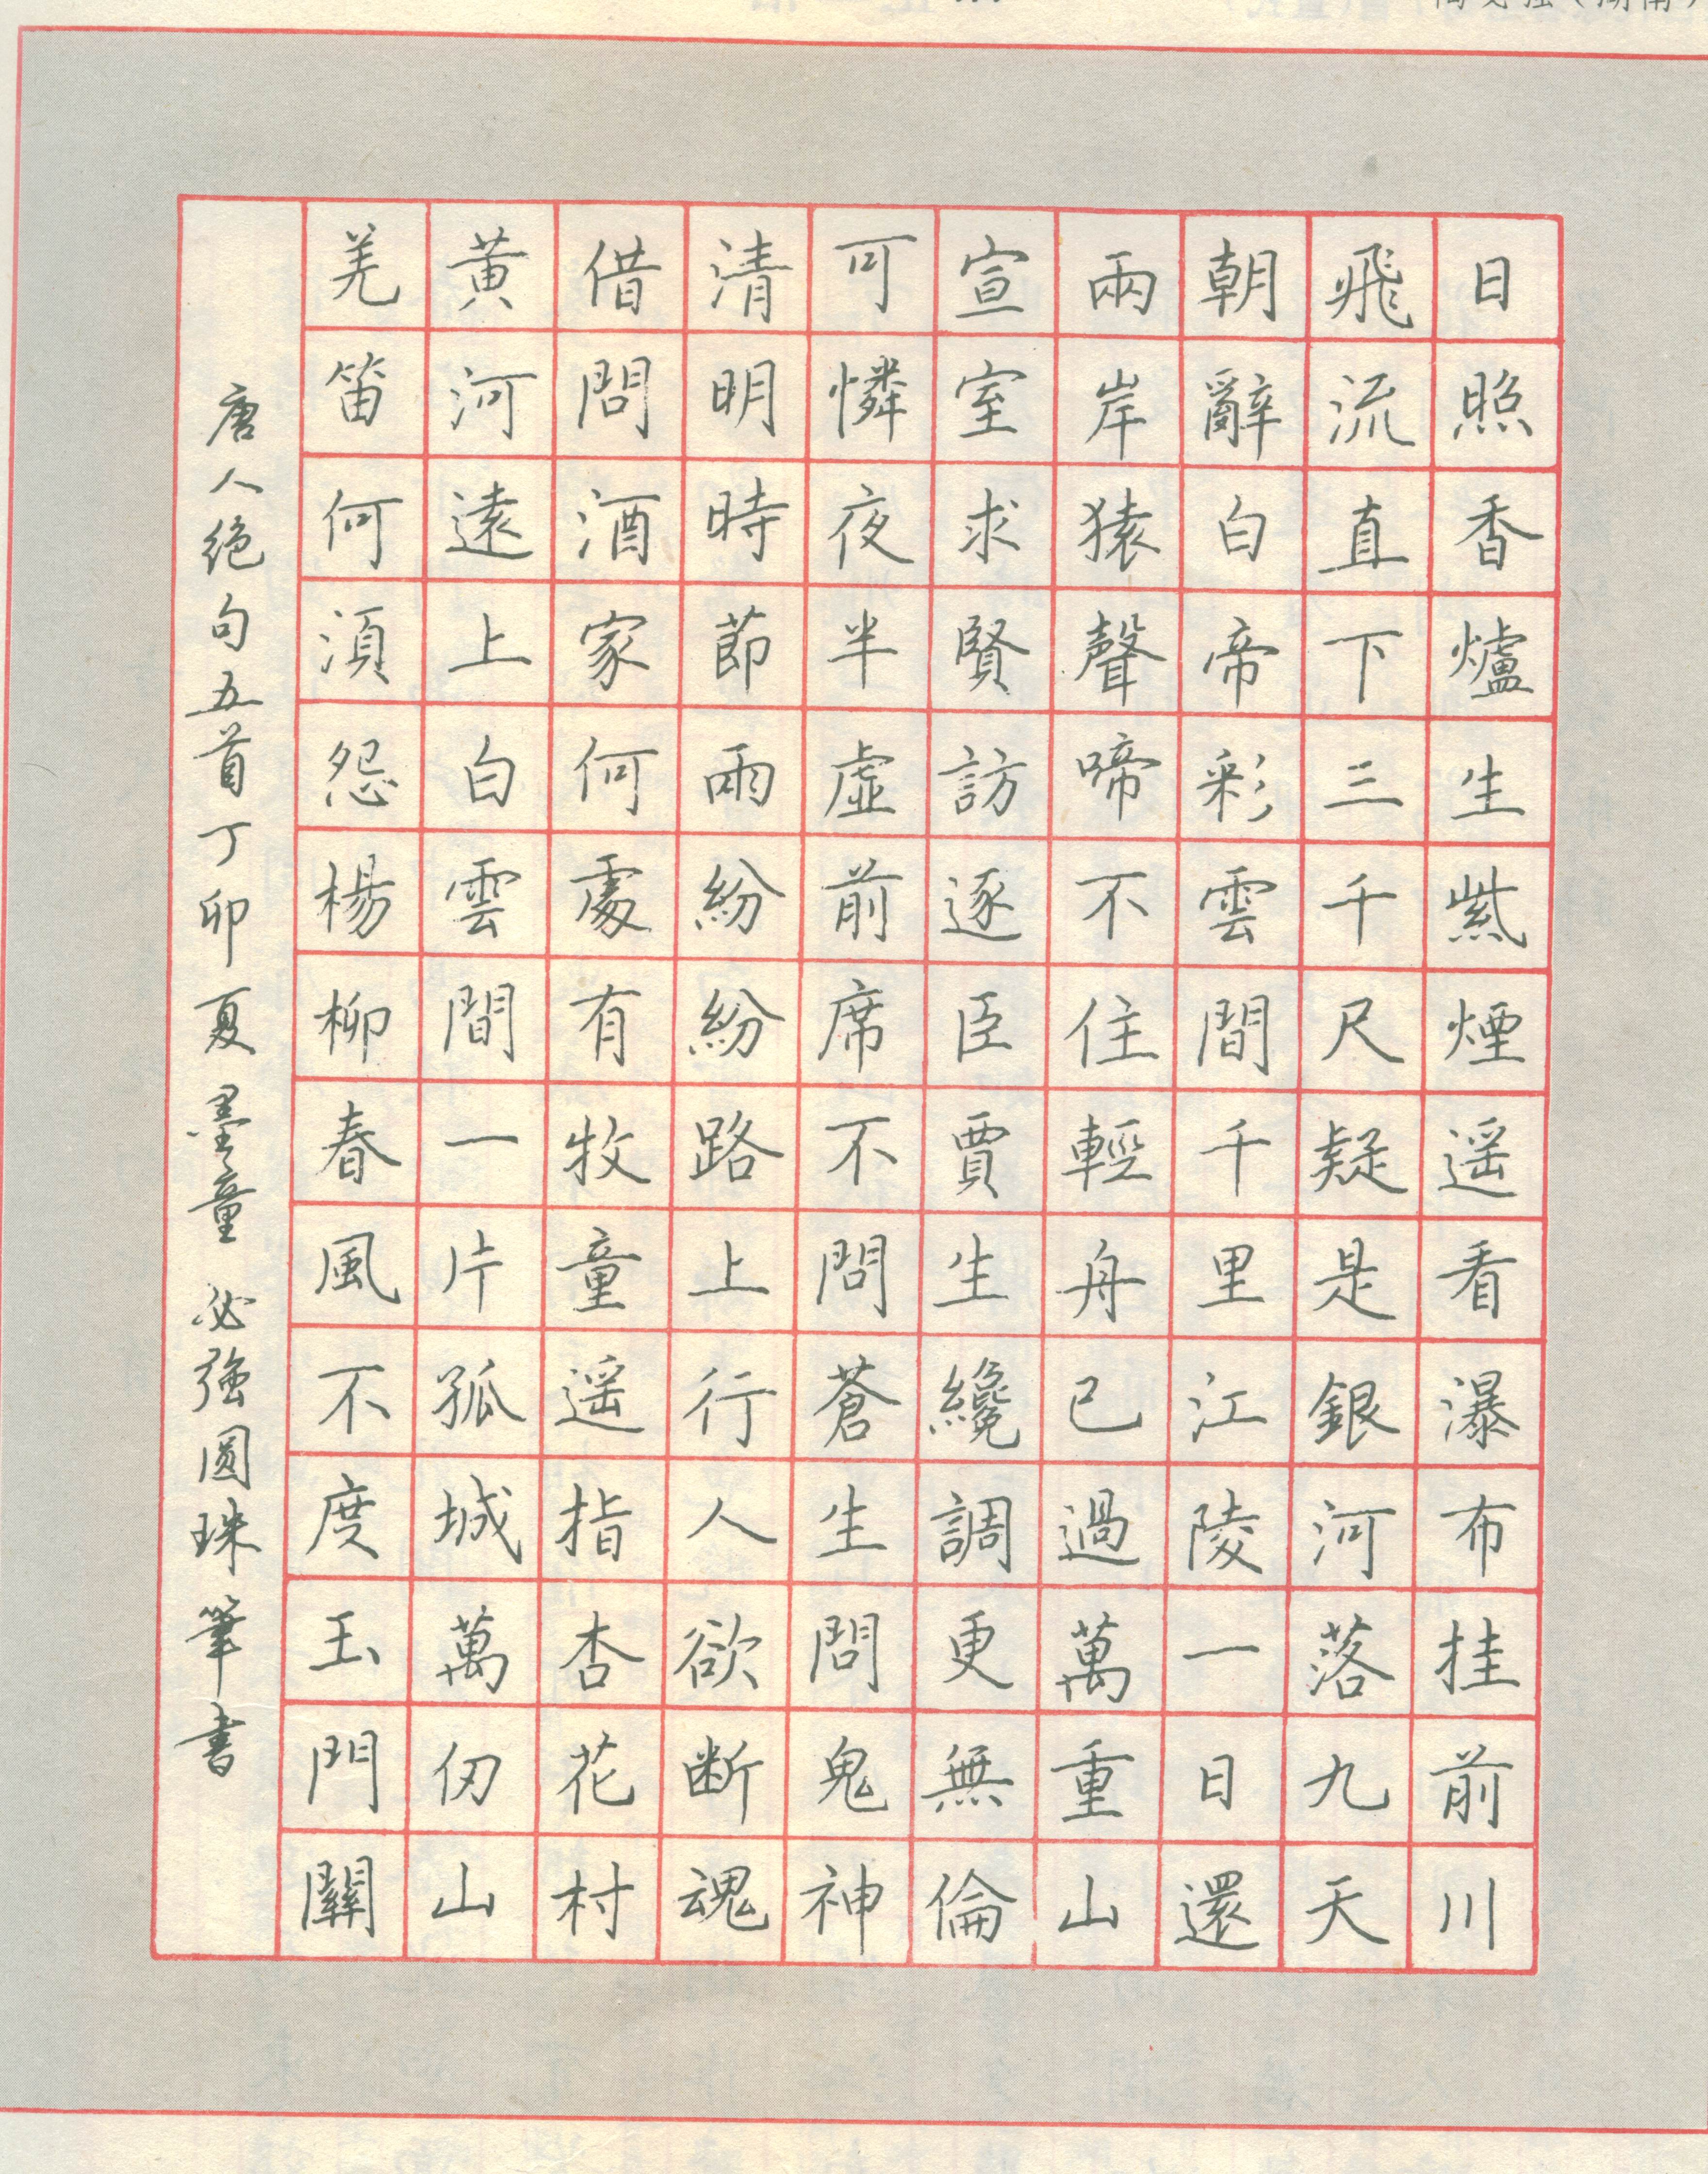 日照香爐生紫煙遥看瀑布挂前川
飛流直下三千尺疑是銀河落九天
朝辭白帝彩雲間千里江陵一日還
兩岸猿聲啼不住輕舟已過萬重山
宣室求賢訪逐臣賈生纔調更無倫
可憐夜半虛前席不問蒼生問鬼神
清明時節雨紛紛路上行人欲断魂
借問酒家何處有牧童遥指杏花村
黄河遠上白雲間一片孤城萬仞山
羌笛何須怨楊柳春風不度玉門關
唐人绝句五首丁卯夏墨童必強圆珠筆書